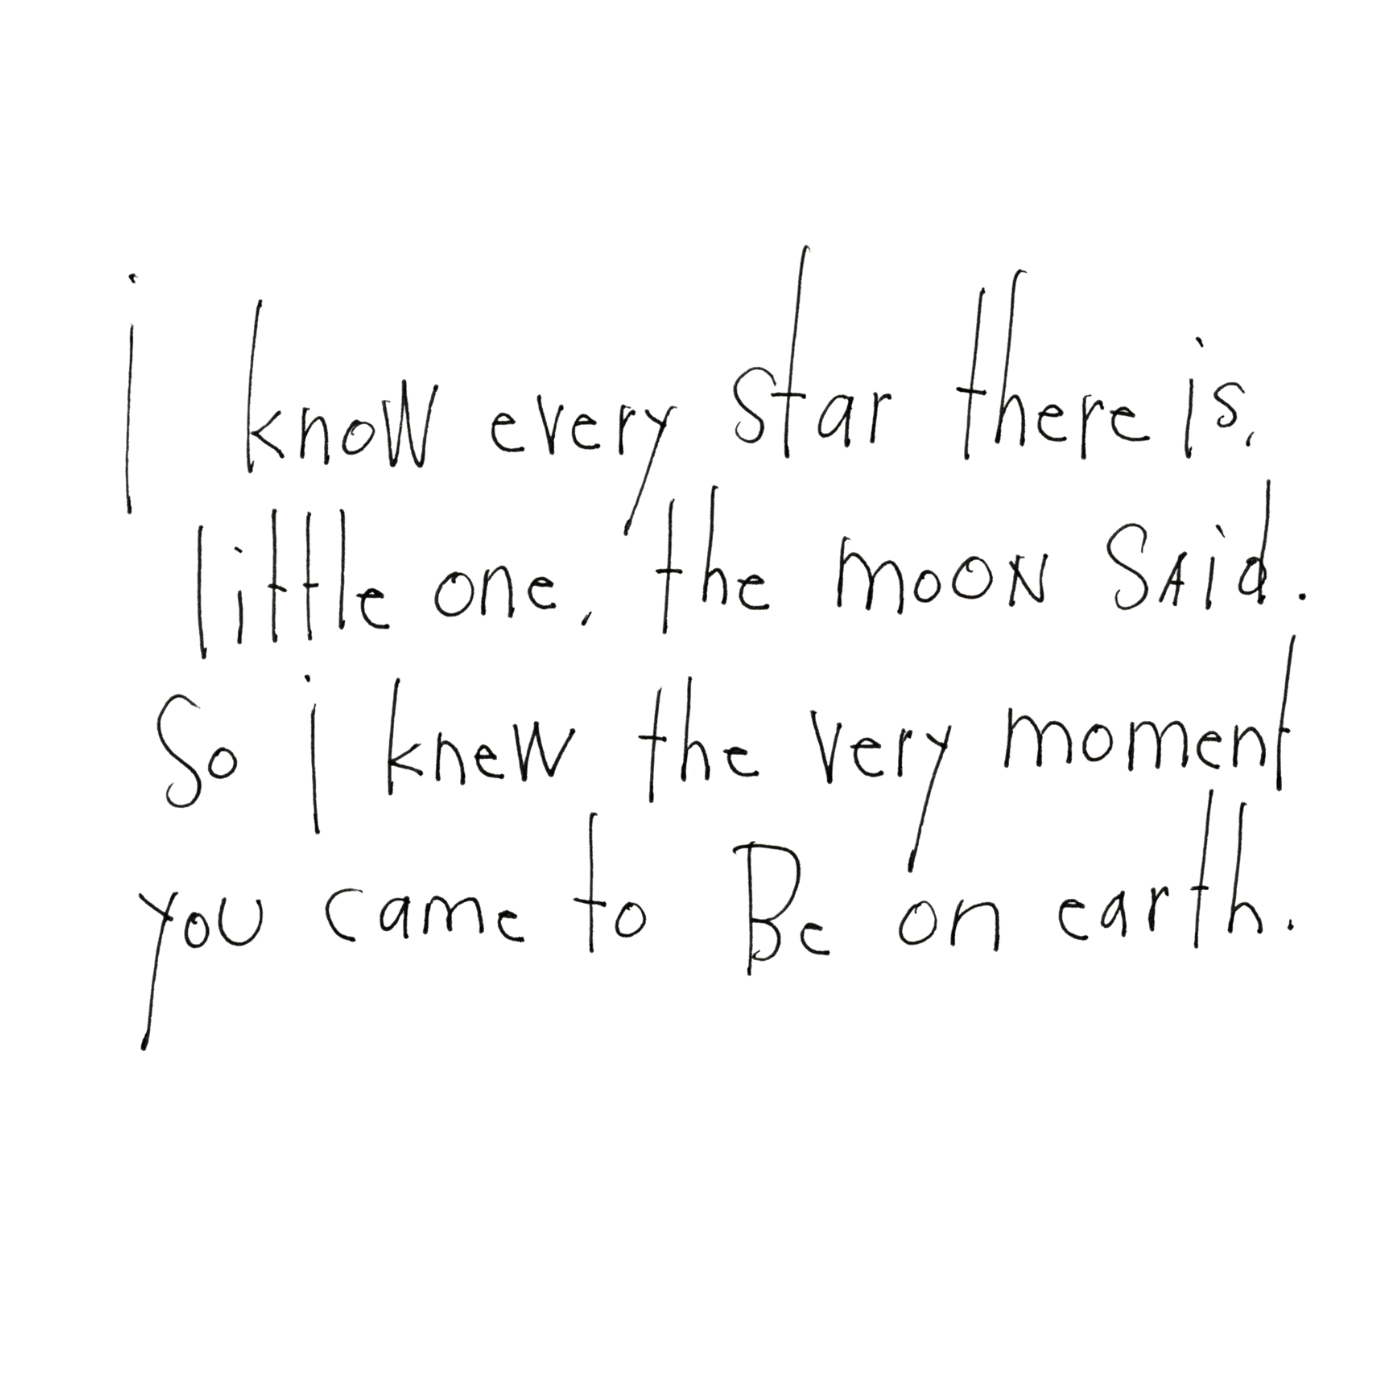 i know every star there is,
little one, the mooN SAid.
So i knew the very moment
you came to Be on earth.